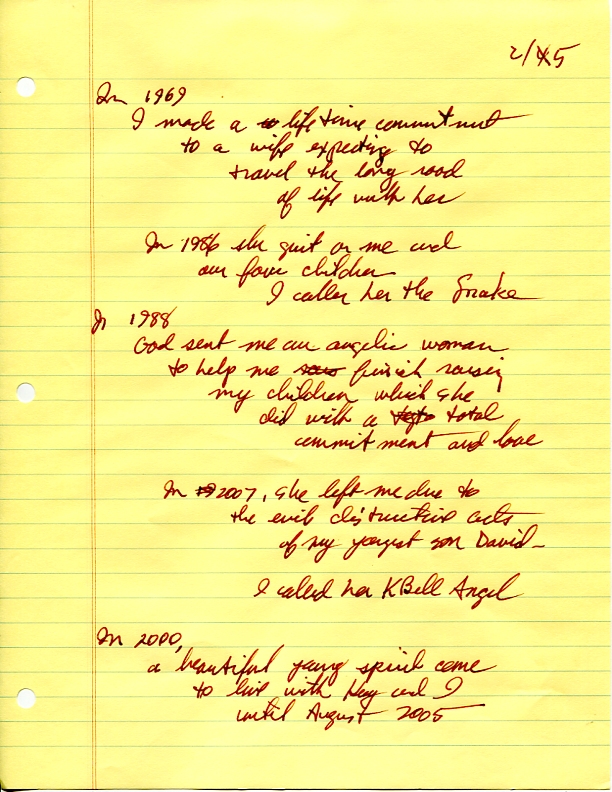 2/45
In 1969
I made a life time commitment
to a wife expecting to
travel the long road
of life with her
In 1986 she quit on me and
our four children
I called her the Snake
In 1988
God sent me an angelic woman
to help me finish raising
my children which she
did with a total
commitment and love
In 2007, she left me due to
the evil distructive acts
of my youngest son David-
I called her KBell Angel
In 2000,
a beautiful young spirit come
to live with Kay and I
until August 2005